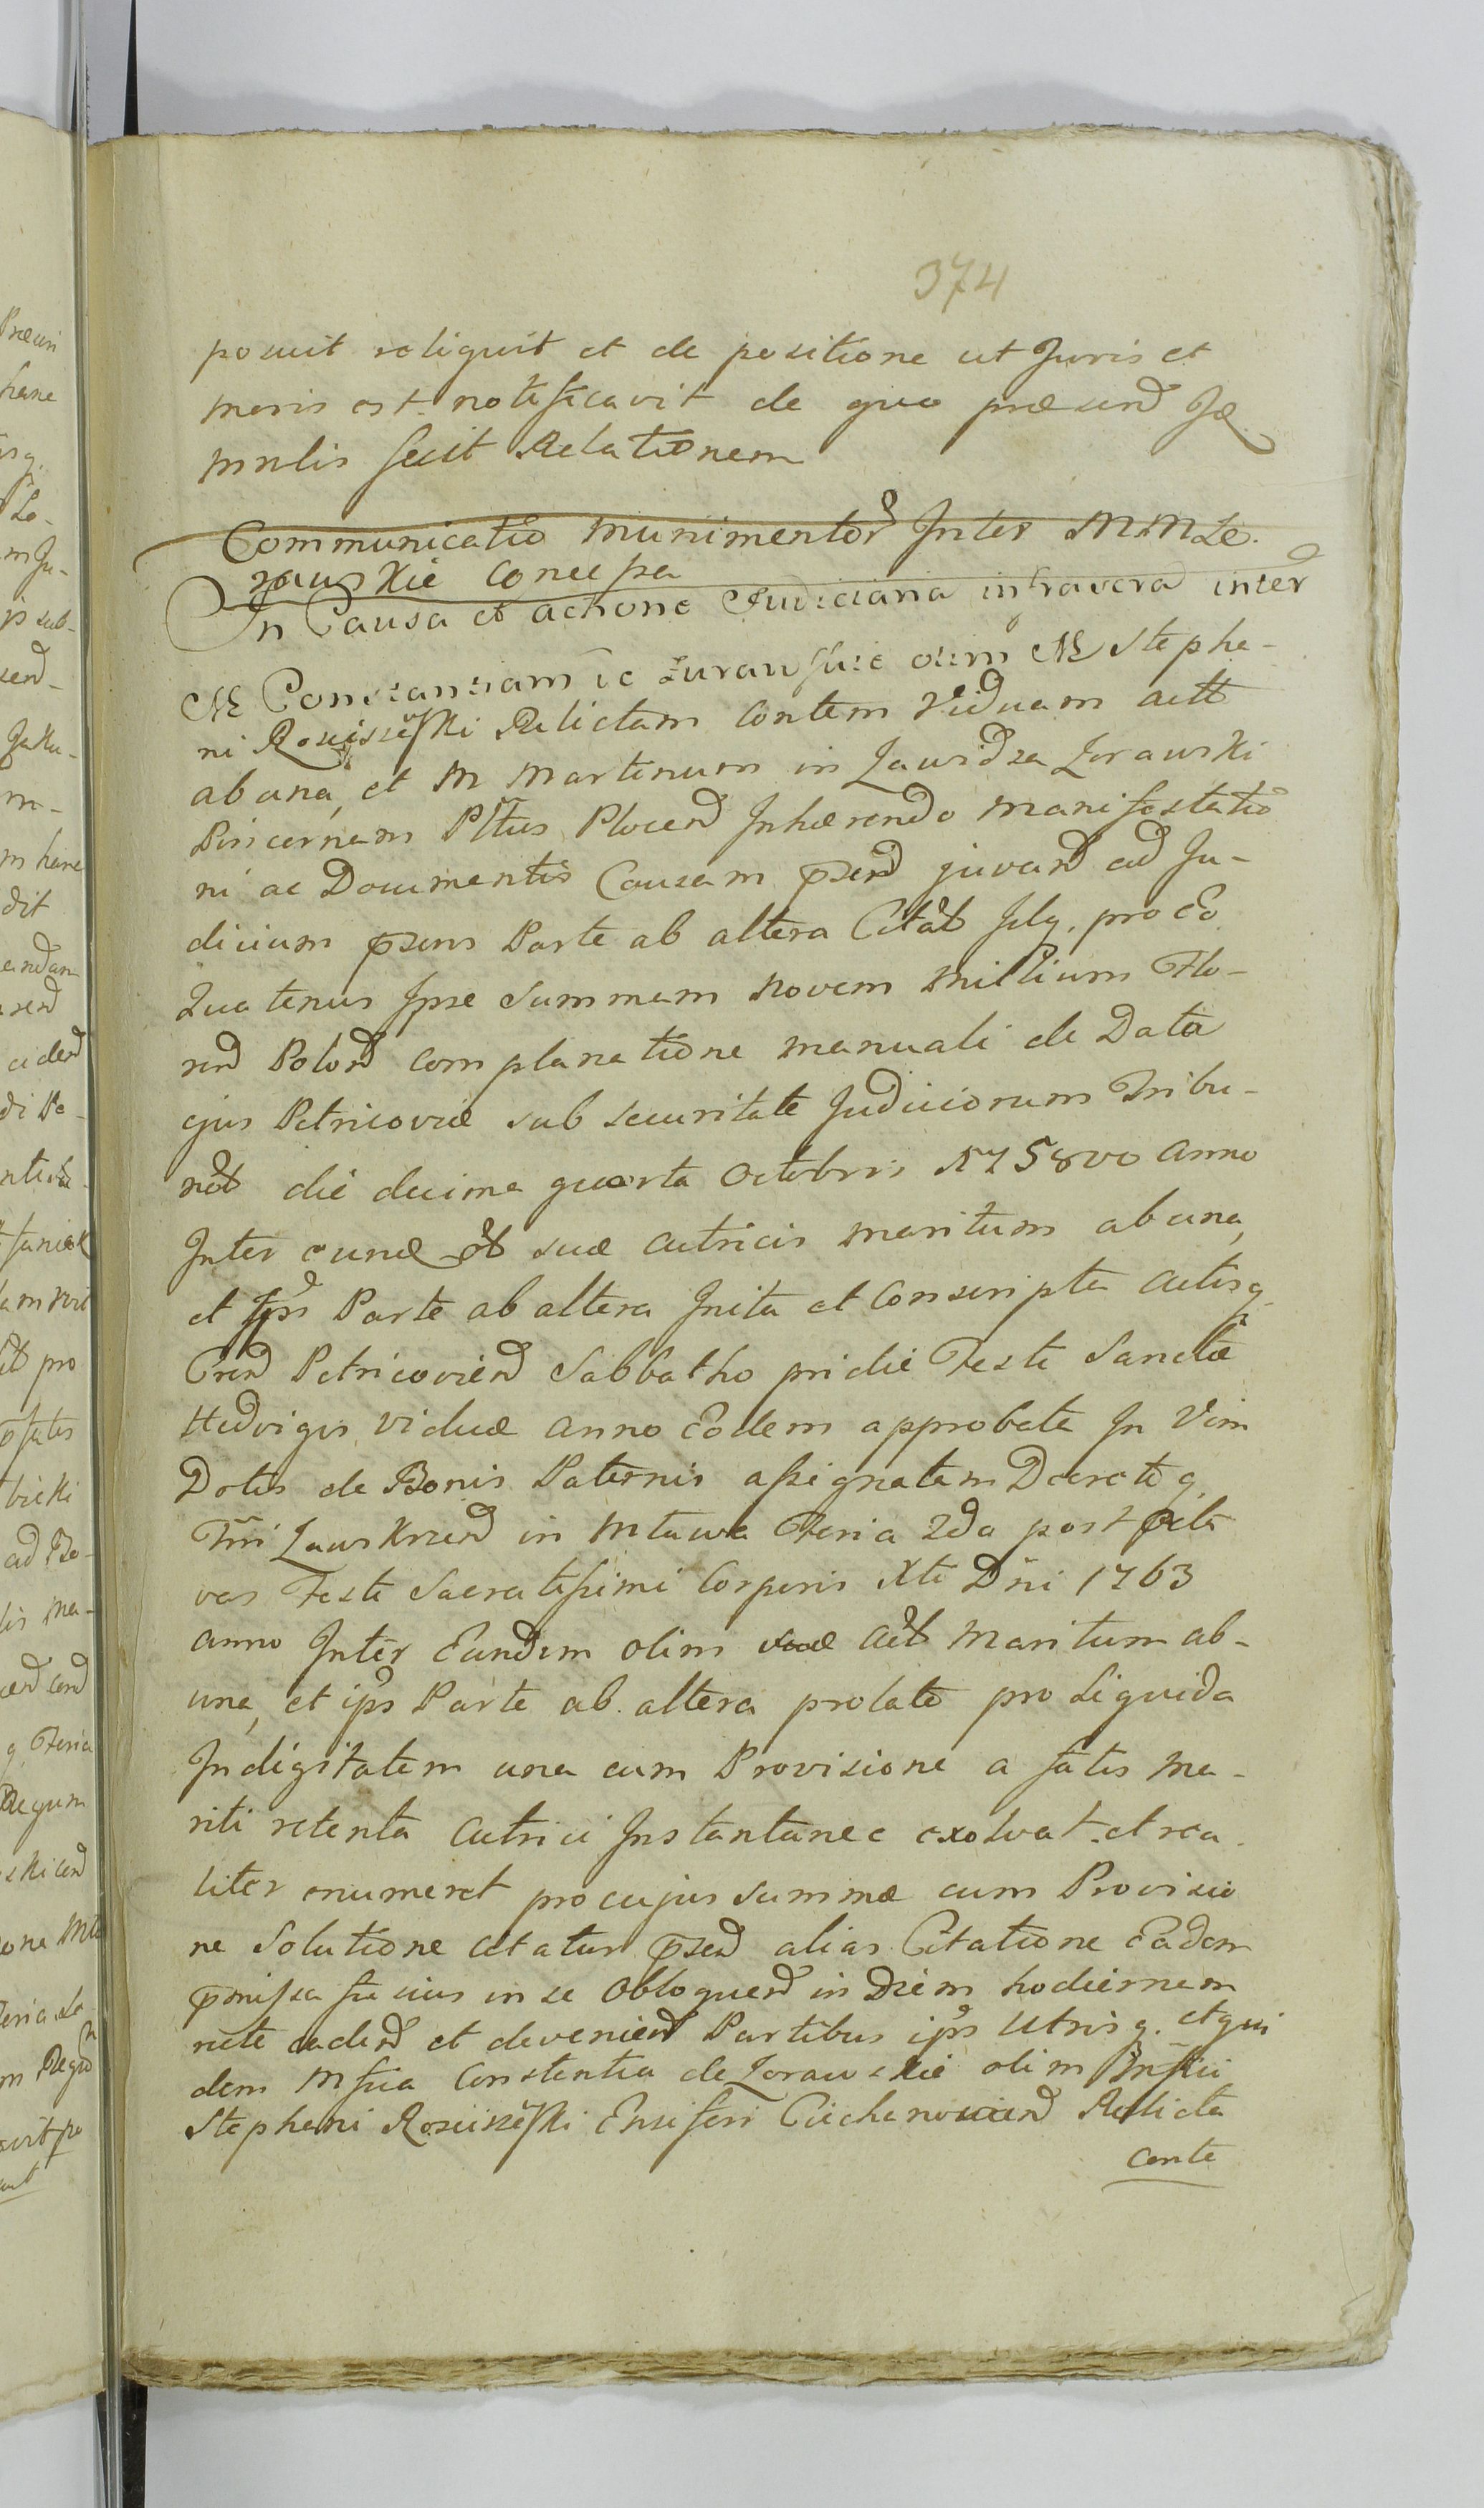 374
posuit reliquit et de positione ut Juris et
moris est notificavit de quo præsend Ju
mulis fecit Relationem
Communicatio Munimentor Inter MM Zo.
rawskie concessa
In Causa et actione Judiciaria intravera inter
M Constantiam de Zurawskie olim M Stephe-
ni Rosciszefski Relictam Contem Viduam actt
ab una, et M Martinum in Ławidza Zorawski
Pincernam Pltus Plocend Inhærendo manifestatio
ni ac Documentis Causam psend juvand ad Ju-
dicium psens Parte ab altera Citat Jlq. pro eo
Quatenus Ipse Summam Novem Millium Flo-
rend Polond complanatione manuali de Data
ejus Petricoviæ sub securitate Judiciorum Tribu-
nat die decima quarta Octobris 1758vo anno
Inter eund suæ Actricis maritum ab una,
et Ips Parte ab altera Inita et Conscripta Actisq
Cren Petricoviend Sabbatho pridie Festi Sanctæ
Hedvigis Viduæ anno Eodem approbata In Vim
Dotis de Bonis Paternis assignatam Decretoq
Tri Zawskrzend in Mlawa Feria 2da post Octa
vas Festi Sacratissimi Corporis Xti Dni 1763
anno Inter Eundem olim suæ act Maritum ab-
una, et ips Parte ab altera prolato pro Liquida
Indigitatam una cum Provisione a fatis ma-
riti retenta Actrici Instantanee exolvat et rea.
liter enumeret pro cujus summæ cum Provisio
ne Solutione citatur psend alias Citatione Eadem
pmissa fusius in se Obloquend in Diem hodiernam
rite cadend et deveniend Partibus ips Utrisq. et qui
dem Mfica Constantia de Zorawskie olim Mfici
Stephani Rosciszefski Ensiferi Ciechanoviend Relicta
conte